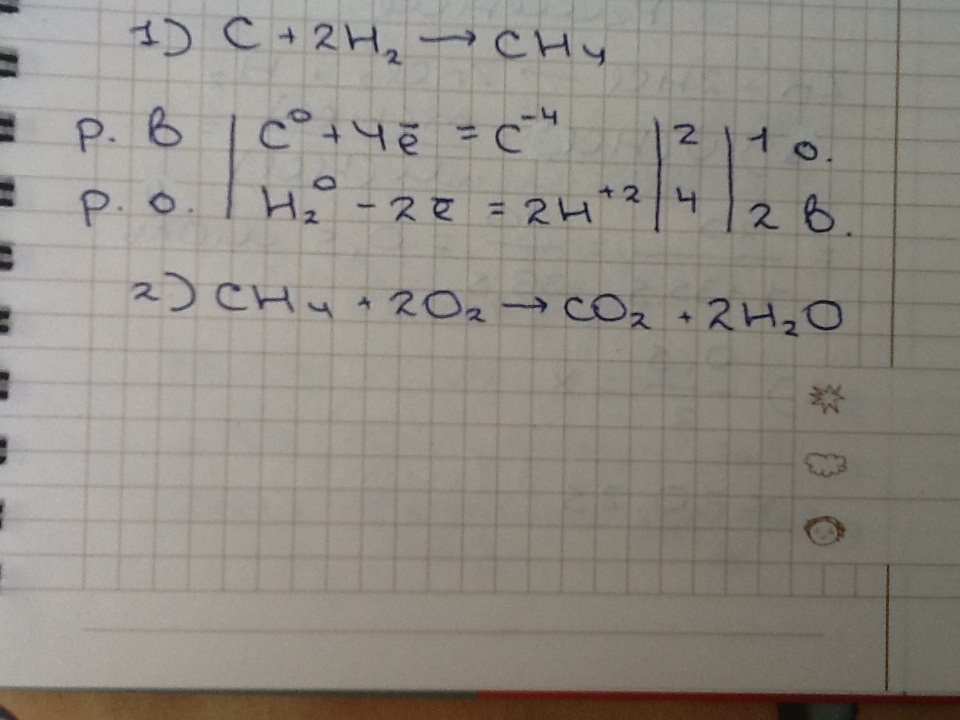 1) C + 2H₂ → CH₄
р. в | C⁰ + 4ē = C⁻⁴ | 2 | 1 о.
р. о. | H₂⁰ - 2ē = 2H⁺² | 4 | 2 в.
2) CH₄ + 2O₂ → CO₂ + 2H₂O